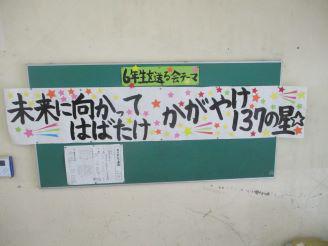 6年生を送る会テーマ
未来に向かって
はばたけ
かがやけ
137の星☆